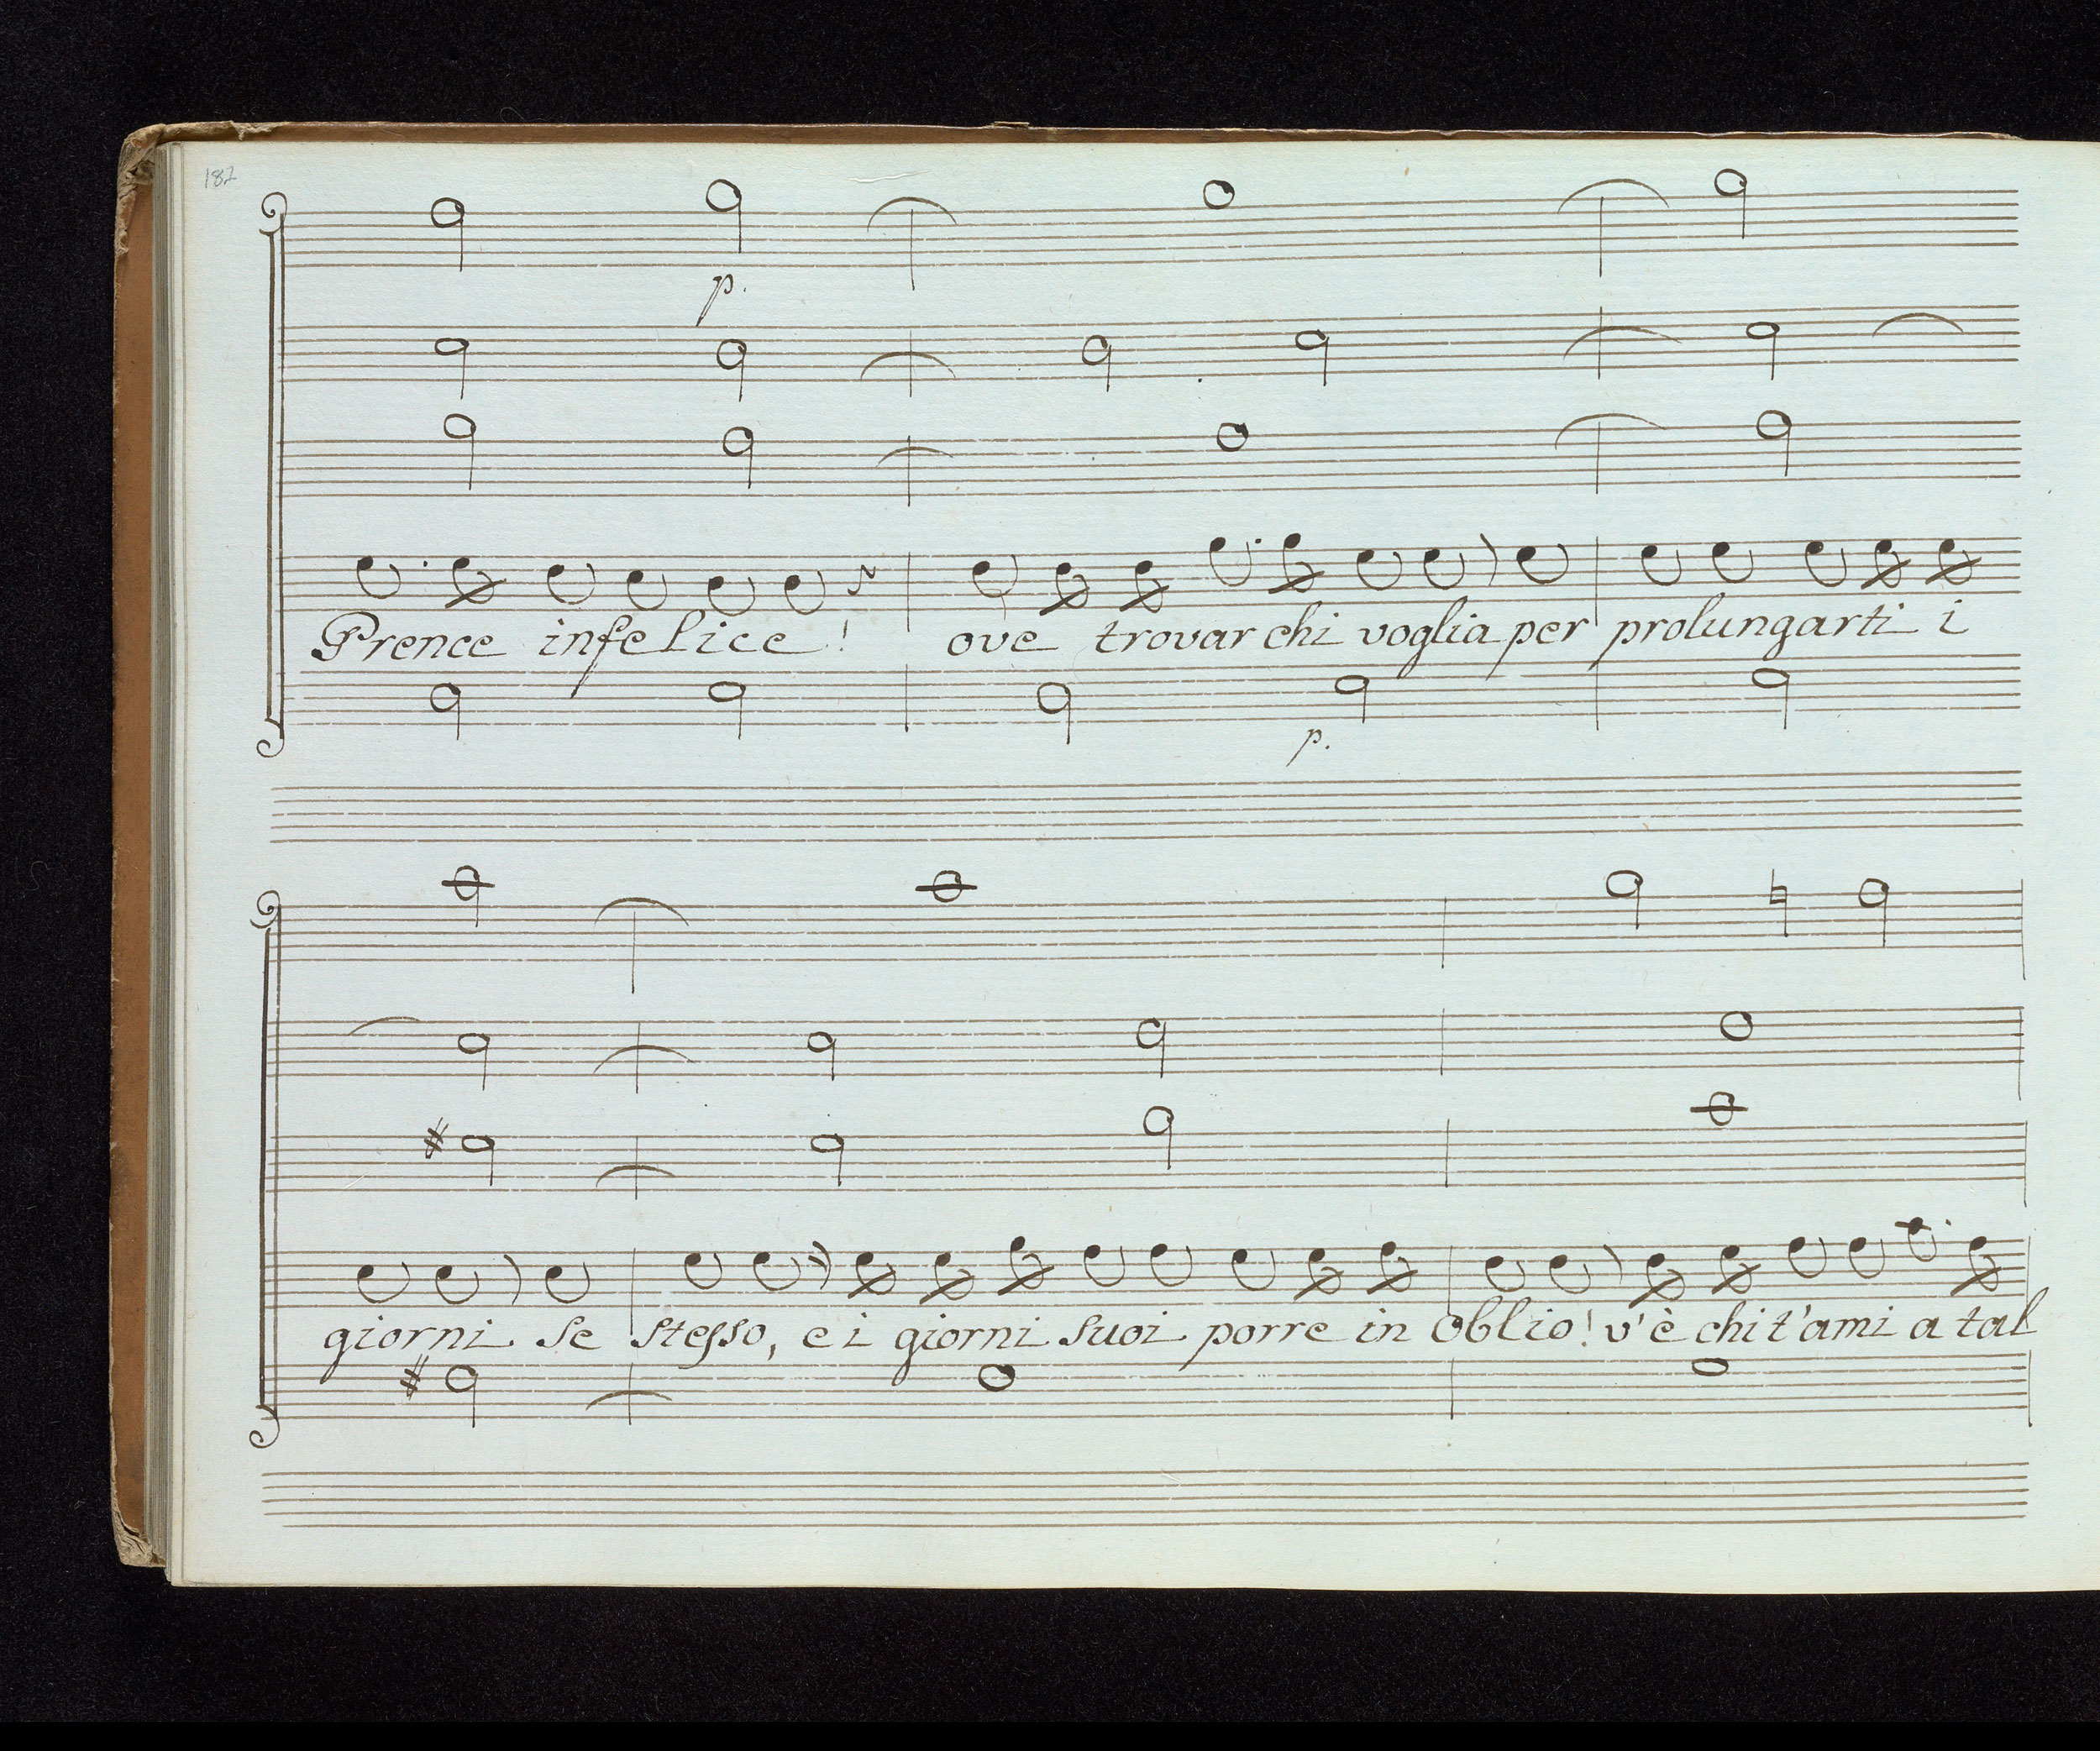 182
p.
Prence infelice! ove trovar chi voglia per prolungarti i
p.
giorni se stesso, e i giorni suoi porre in oblio! v'è chi t'ami a tal